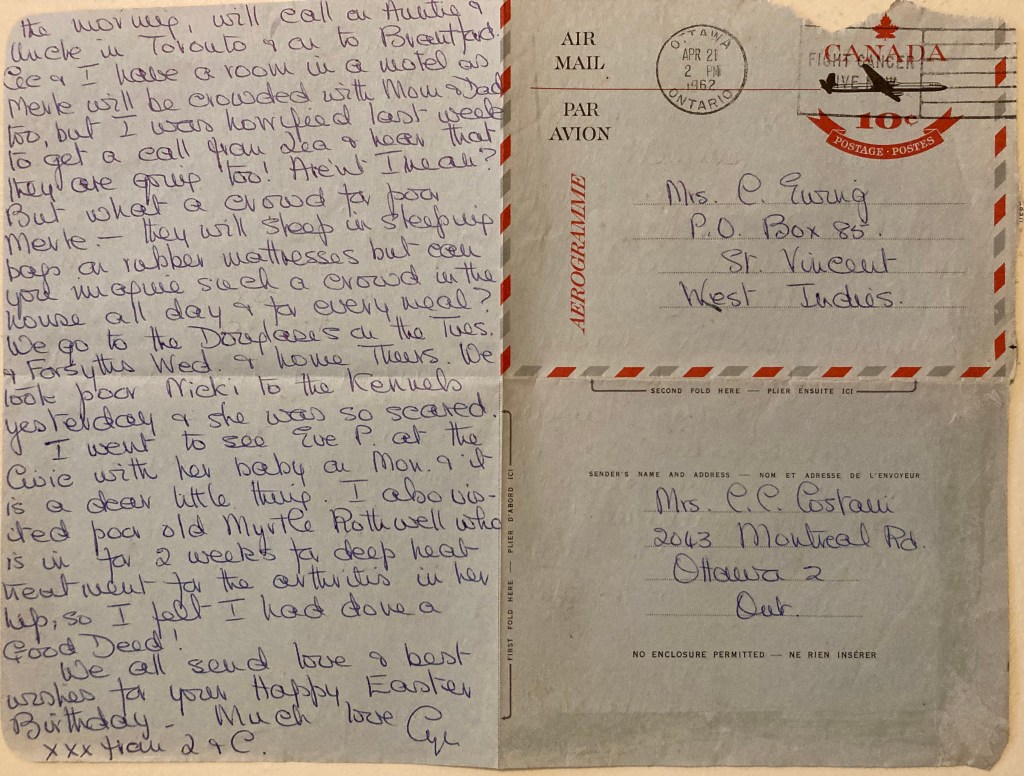 the morning, will call on Auntie &
Uncle in Toronto & on to Brantford.
Cec & I have a room in a motel as
Merle will be crowded with Mom & Dad
too, but I was horrified last week
to get a call from Lea & hear that
they are going too! Aren't I mean?
But what a crowd for poor
Merle — they will sleep in sleeping
bags on rubber mattresses but can
you imagine such a crowd in the
house all day & for every meal?
We go to the Douglases on the Tues.
& Forsyths Wed. & home Thurs. We
took poor Nicki to the Kennels
yesterday & she was so scared.
I went to see Eve P. at the
Civic with her baby on Mon. & it
is a dear little thing. I also vis-
ited poor old Myrtle Rothwell who
is in for 2 weeks for deep heat
treatment for the arthritis in her
hip, so I felt I had done a
Good Deed!
We all send love & best
wishes for your Happy Easter
Birthday — Much love
xxx from 2 & C.
AIR
MAIL
PAR
AVION
AEROGRAMME
OTTAWA
APR 21
2 PM
1962
ONTARIO
FIGHT CANCER
CANADA
10c
POSTAGE · POSTES
Mrs. C. Ewing
P.O. Box 85.
St. Vincent
West Indies.
SECOND FOLD HERE — PLIER ENSUITE ICI
FIRST FOLD HERE — PLIER D'ABORD ICI
SENDER'S NAME AND ADDRESS — NOM ET ADRESSE DE L'ENVOYEUR
Mrs. C.C. Costain
2043 Montreal Rd.
Ottawa 2
Ont.
NO ENCLOSURE PERMITTED — NE RIEN INSÉRER